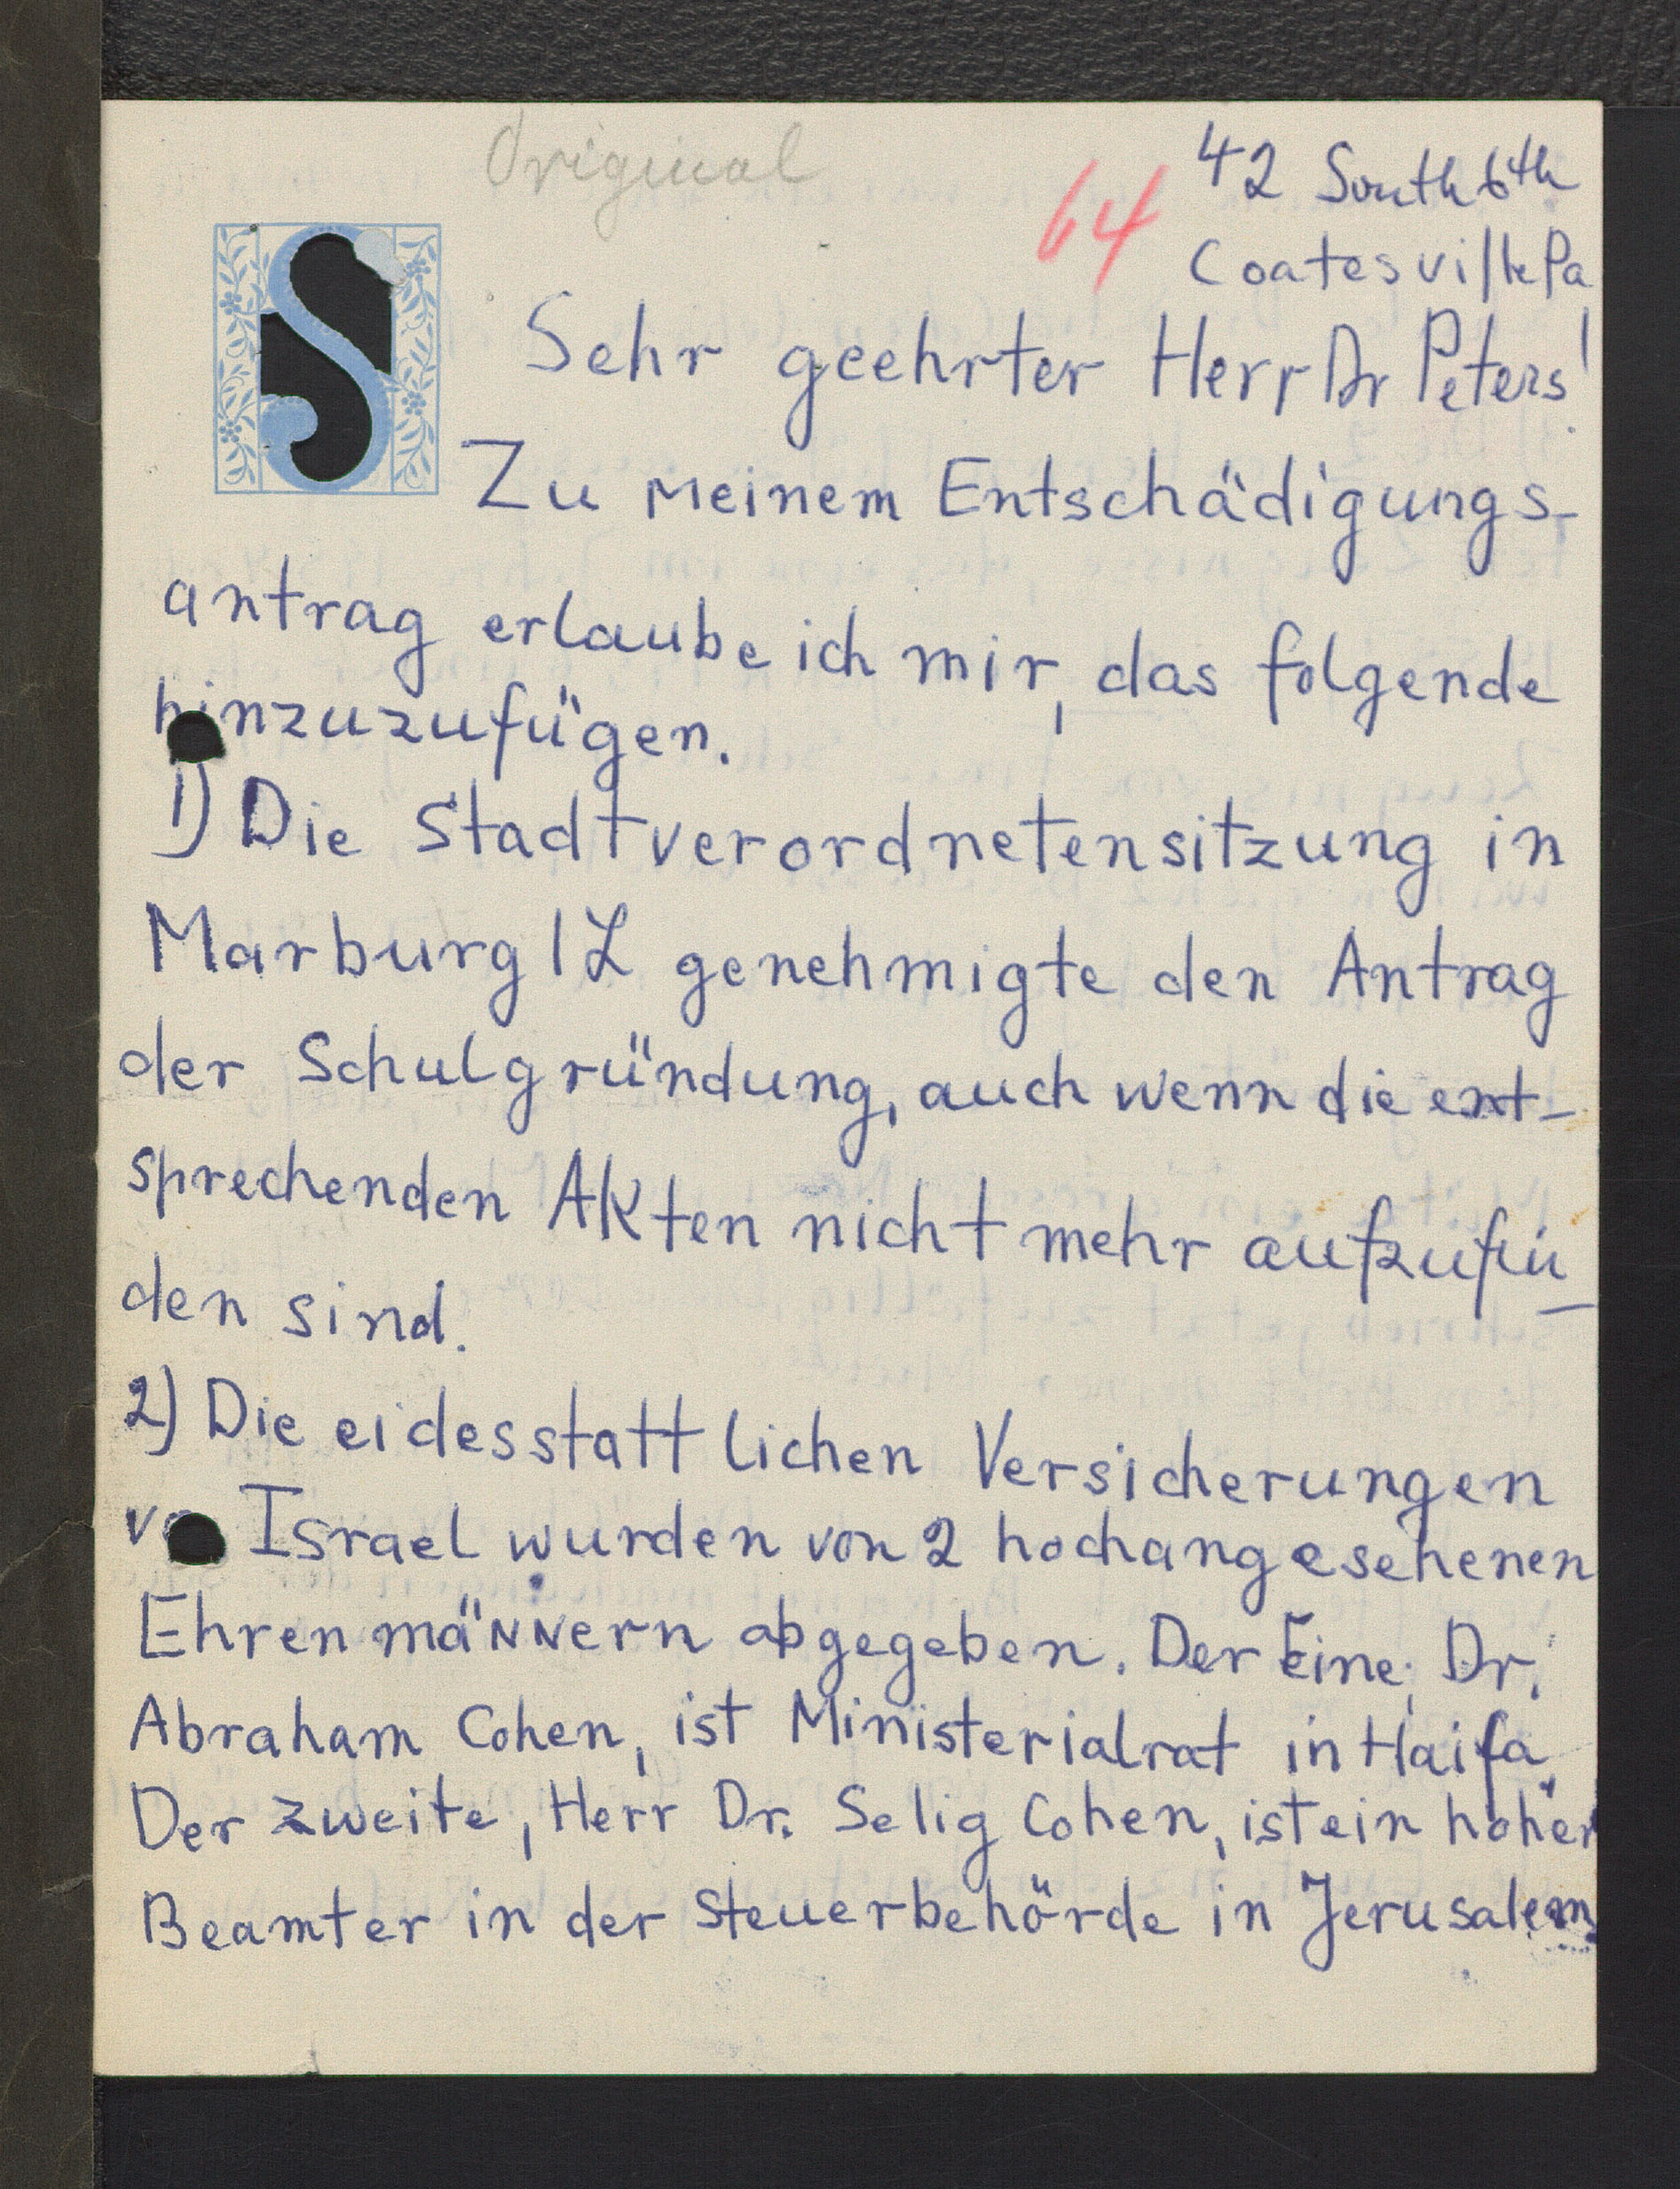 Original
64
42 South 6th
Coatesville Pa
S
Sehr geehrter Herr Dr Peters!
Zu meinem Entschädigungs-
antrag erlaube ich mir, das folgende
hinzuzufügen.
1) Die Stadtverordnetensitzung in
Marburg/L genehmigte den Antrag
der Schulgründung, auch wenn die ent-
sprechenden Akten nicht mehr aufzufin-
den sind.
2) Die eidesstattlichen Versicherungen
v Israel wurden von 2 hochangesehenen
Ehrenmännern abgegeben. Der Eine, Dr.
Abraham Cohen, ist Ministerialrat in Haifa.
Der zweite, Herr Dr. Selig Cohen, ist ein hoher
Beamter in der Steuerbehörde in Jerusalem.